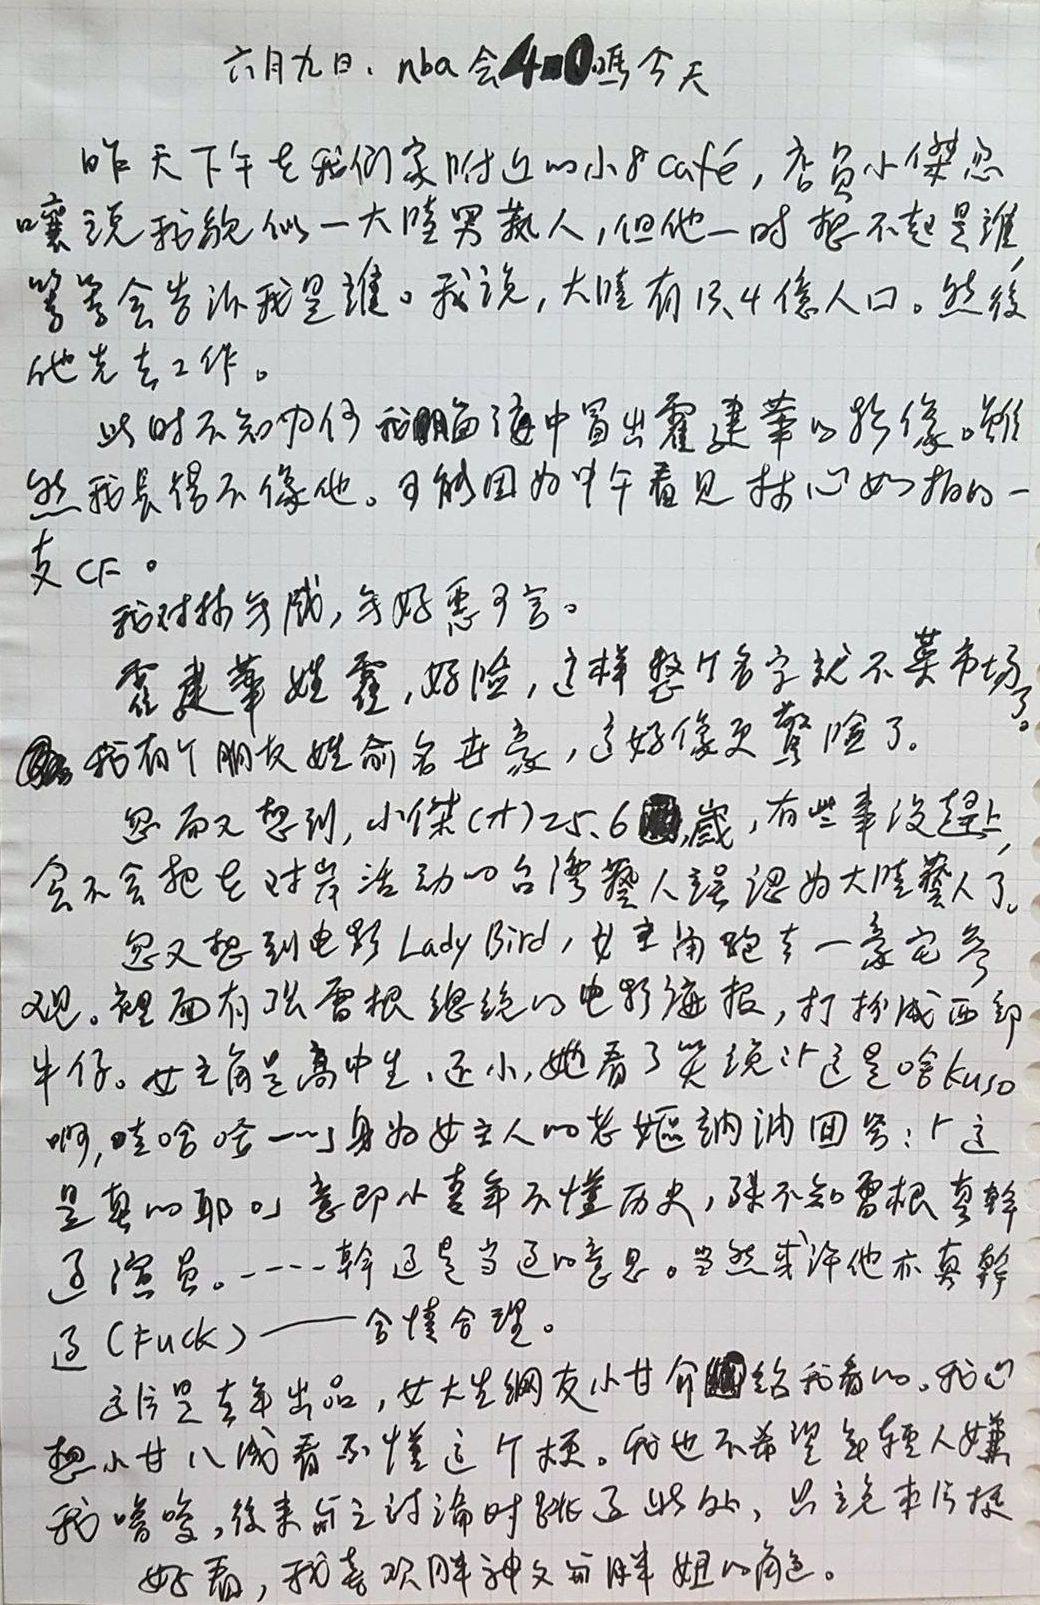 六月九日、nba会4-0嗎今天
昨天下午在我们家附近的小8café,店員小傑忽
嚷说我貌似一大陸男艺人,但他一时想不起是誰,
等等会告诉我是誰。我说,大陸有13,4億人口。然後
他先去工作。
此时不知为何我脑海中冒出霍建華的影像。雖
然我長得不像他。可能因为中午看见林心如拍的一
支CF。
我对林无感,无好恶可言。
霍建華姓霍,好险,这样整个名字就不菜市场了。
我有个朋友姓俞名世豪,這好像更驚险了。
忽而又想到,小傑(才)25、6歲,有些事没趕上,
会不会把在对岸活动的台灣藝人誤認为大陸藝人了。
忽又想到电影Lady Bird,女主角跑去一豪宅参
观。裡面有张雷根總统的电影海报,打扮成西部
牛仔。女主角是高中生、还小,她看了笑说「这是啥kuso
啊,哇哈哈——」身为女主人的老嫗訥訥回答:「这
是真的耶。」意即小青年不懂历史,殊不知雷根真幹
过演员。……幹过是当过的意思。当然或许他亦真幹
过(Fuck)——合情合理。
这片是去年出品,女大生網友小甘介給我看的。我心
想小甘八成看不懂这个梗。我也不希望年輕人嫌
我嚕嗦,後来与之讨論时跳过此处、只说本片挺
好看,我喜欢胖神父与胖妞的角色。